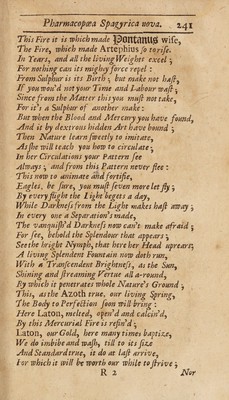 Pharmacopœa Spagyrica nova. 241
This Fire it is which made Pontanus wise,
The Fire, which made Artephius so to rise.
In Tears, and all the living Weights excel;
For nothing can its mighty force repel:
From Sulphur is its Birth; but make not hast,
If you wou'd not your Time and Labour wast;
Since from the Matter this you must not take,
For it's a Sulphur of another make:
But when the Blood and Mercury you have found,
And it by dextrous hidden Art have bound;
Then Nature learn sweetly to imitate,
As she will teach you how to circulate;
In her Circulations your Pattern see
Always; and from this Pattern never flee:
This now to animate and fortifie,
Eagles, be sure, you must seven more let fly;
By every flight the Light begets a day,
While Darkness from the Light makes hast away;
In every one a Separation's made,
The vanquish'd Darkness now can't make afraid;
For see, behold the Splendour that appears;
See the bright Nymph, that here her Head uprears;
A living Splendent Fountain now doth run,
With a Transcendent Brightness, as the Sun,
Shining and streaming Vertue all a-round,
By which it penetrates whole Nature's Ground;
This, as the Azoth true, our living Spring,
The Body to Perfection soon will bring:
Here Laton, melted, open'd and calcin'd,
By this Mercurial Fire is refin'd;
Laton, our Gold, here many times baptize,
We do imbibe and wash, till to its size
And Standard true, it do at last arrive,
For which it will be worth our while to strive;
R 2 Nor